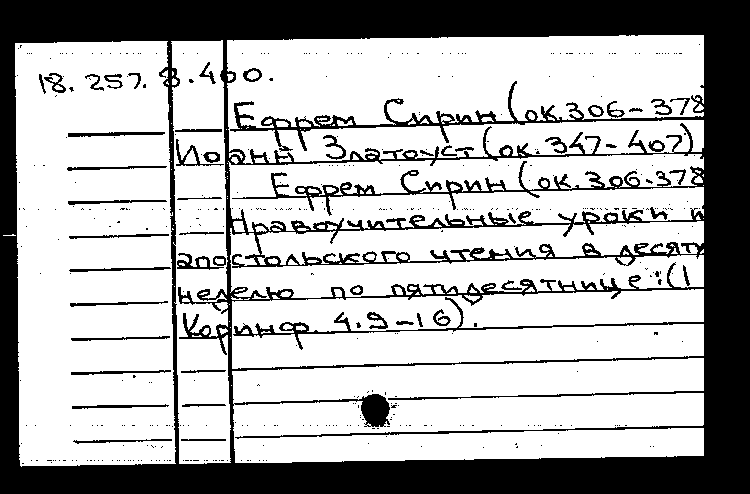 18. 257. 8. 400.
Ефрем Сирин (ок. 306-378
Иоанн Златоуст (ок. 347-407),
Ефрем Сирин (ок. 306-378
Нравоучительные уроки и
апостольского чтения в десят
неделю по пятидесятнице: (1
Коринф. 4.9-16).